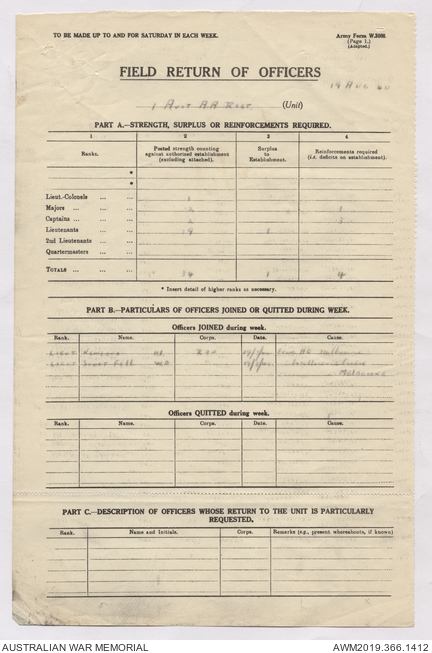 TO BE MADE UP TO AND FOR SATURDAY IN EACH WEEK.
Army Form W.3008.
(Page 1.)
(Adapted.)
FIELD RETURN OF OFFICERS
19 AUG 40
1 Aust AA Regt. (Unit)
PART A.—STRENGTH, SURPLUS OR REINFORCEMENTS REQUIRED.
1 2 3 4
Ranks. Posted strength counting against authorised establishment (excluding attached). Surplus to Establishment. Reinforcements required (i.e. deficits on establishment).
*
*
Lieut.-Colonels ... ... 1
Majors ... ... 1
Captains ... ... 3
Lieutenants ... 19 1
2nd Lieutenants ... ...
Quartermasters ... ...
TOTALS ... ... 34 1 4
* Insert detail of higher ranks as necessary.
PART B.—PARTICULARS OF OFFICERS JOINED OR QUITTED DURING WEEK.
Officers JOINED during week.
Rank. Name. Corps. Date. Cause.
Lieut Melbourne
Lieut Scott Fell
Melbourne
Officers QUITTED during week.
Rank. Name. Corps. Date. Cause.
PART C.—DESCRIPTION OF OFFICERS WHOSE RETURN TO THE UNIT IS PARTICULARLY
REQUESTED.
Rank. Name and Initials. Corps. Remarks (e.g., present whereabouts, if known)
AUSTRALIAN WAR MEMORIAL
AWM2019.366.1412